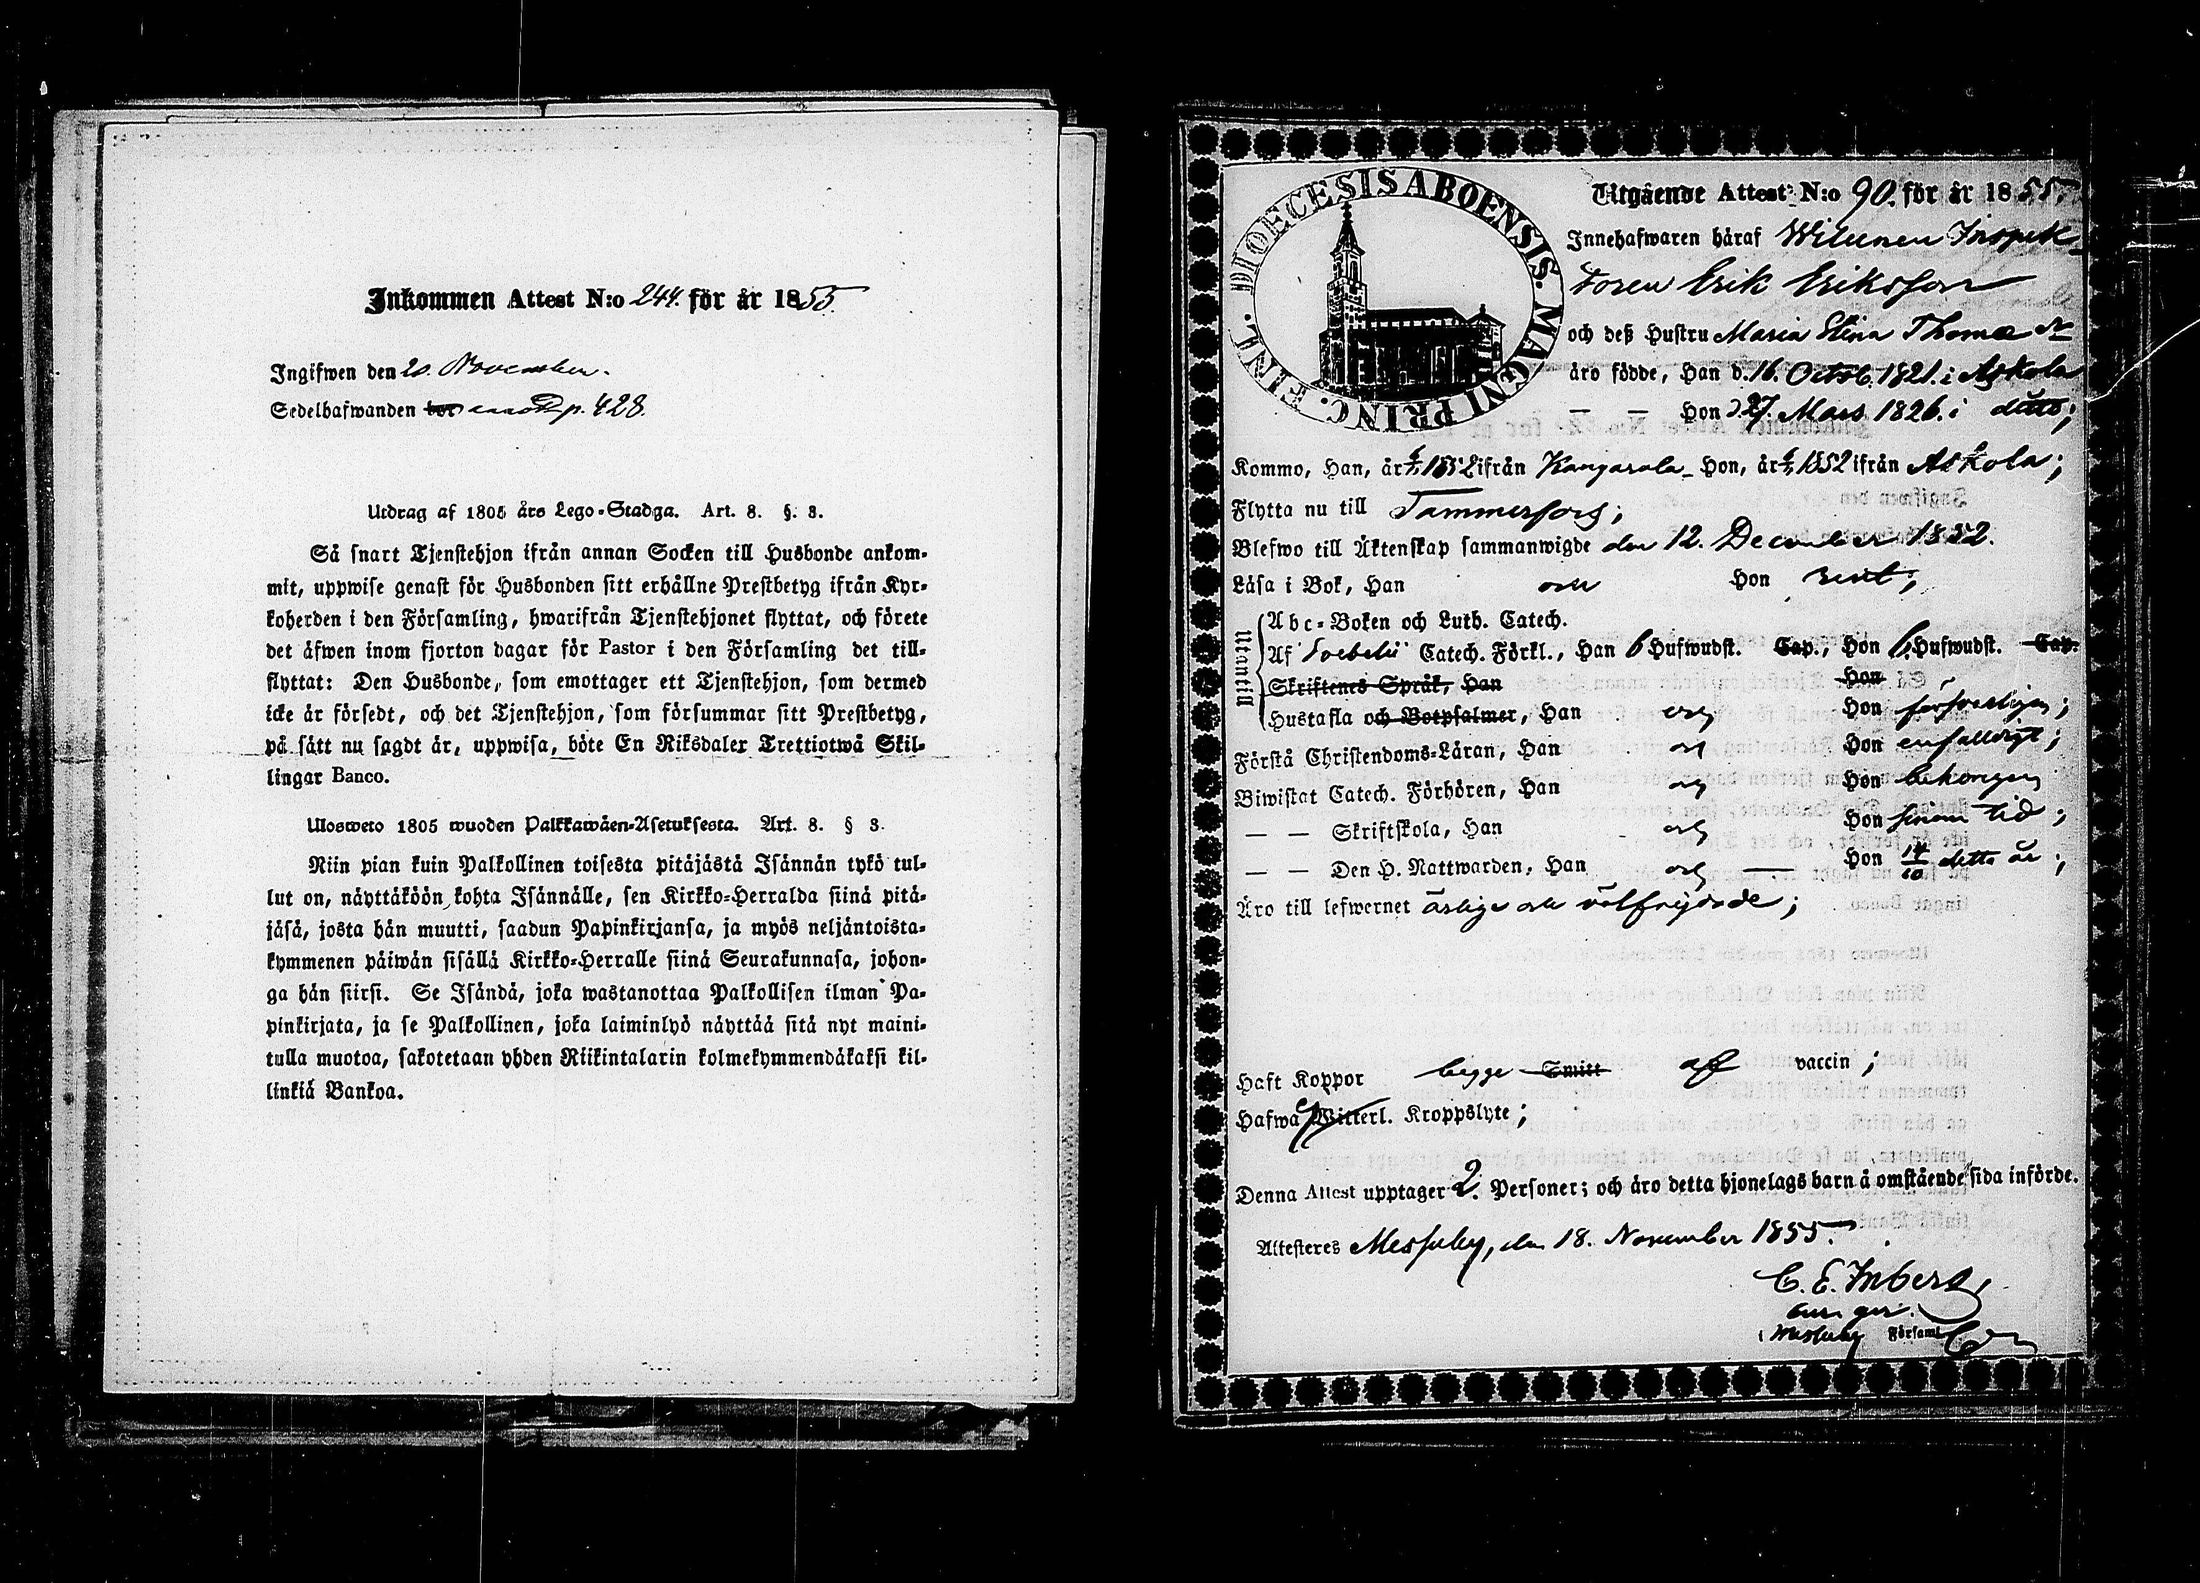 Inkommen Attest N:o 244. för år 1855.
Ingifwen den 20. November.
Sedelhafwanden bor p. 428.
Utdrag af 1805 års Lego-Stadga. Art. 8. §. 8.
Så snart Tjenstehjon ifrån annan Socken till Husbonde ankom-
mit, uppwise genast för Husbonden sitt erhållne Prestbetyg ifrån Kyr-
koherden i den Församling, hwarifrån Tjenstehjonet flyttat, och förete
det äfwen inom fjorton dagar för Pastor i den Församling det till-
flyttat: Den Husbonde, som emottager ett Tjenstehjon, som dermed
icke är försedt, och det Tjenstehjon, som försummar sitt Prestbetyg,
på sätt nu sagdt är, uppwisa, böte En Riksdaler Trettiotwå Skil-
lingar Banco.
Ulosweto 1805 wuoden Palkkawäen-Asetuksesta. Art. 8. § 3.
Niin pian kuin Palkollinen toisesta pitäjästä Isännän tykö tul-
lut on, näyttäköön kohta Isännälle, sen Kirkko-Herralda siinä pitä-
jäsä, josta hän muutti, saadun Papinkirjansa, ja myös neljäntoista-
kymmenen päiwän sisällä Kirkko-Herralle siinä Seurakunnasa, johon-
ga hän siirsi. Se Isändä, joka wastanottaa Palkollisen ilman Pa-
pinkirjata, ja se Palkollinen, joka laiminlyö näyttää sitä nyt maini-
tulla muotoa, sakotetaan yhden Riikintalarin kolmekymmendäkaksi kil-
linkiä Bankoa.
DIOECESIS ABOENSIS. MAGNI PRINC. FINL.
Utgående Attest N:o 90. för år 1855.
Innehafwaren häraf Inspek-
toren Erik Eriksson
och deß Hustru Maria Stina Thomæ dr
äro födde, Han d. 16. Octob. 1821. i Askola
— — Hon d. 27. Mars 1826. i ditto;
Kommo, Han, år 1852 ifrån Kangasala Hon, år 1852 ifrån Askola;
Flytta nu till Tammerfors;
Blefwo till Äktenskap sammanwigde den 12. December 1852.
Läsa i Bok, Han och Hon rent;
Utantill
Abc-Boken och Luth. Catech.
Af Catech. Förkl., Han 6 Hufwudst. Cap., Hon 6 Hufwudst. Cap.
Skriftenes Språk, Han Hon
Hustafla och Botpsalmer, Han och Hon försvarligen;
Förstå Christendoms-Läran, Han och Hon enfaldigt;
Biwistat Catech. Förhören, Han och Hon behörigen
— — Skriftskola, Han och Hon sinom tid;
— — Den H. Nattwarden, Han och — Hon 14/10 detta år;
Äro till lefwernet ärlige och välfrejdade;
Haft Koppor begge Smitt af vaccin;
Hafwa Witterl. Kroppslyte;
Denna Attest upptager 2. Personer; och äro detta hjonelags barn å omstående sida införde.
Attesteres Messuby, den 18. November 1855.
C. E. Inberg,
i Messuby Församl.